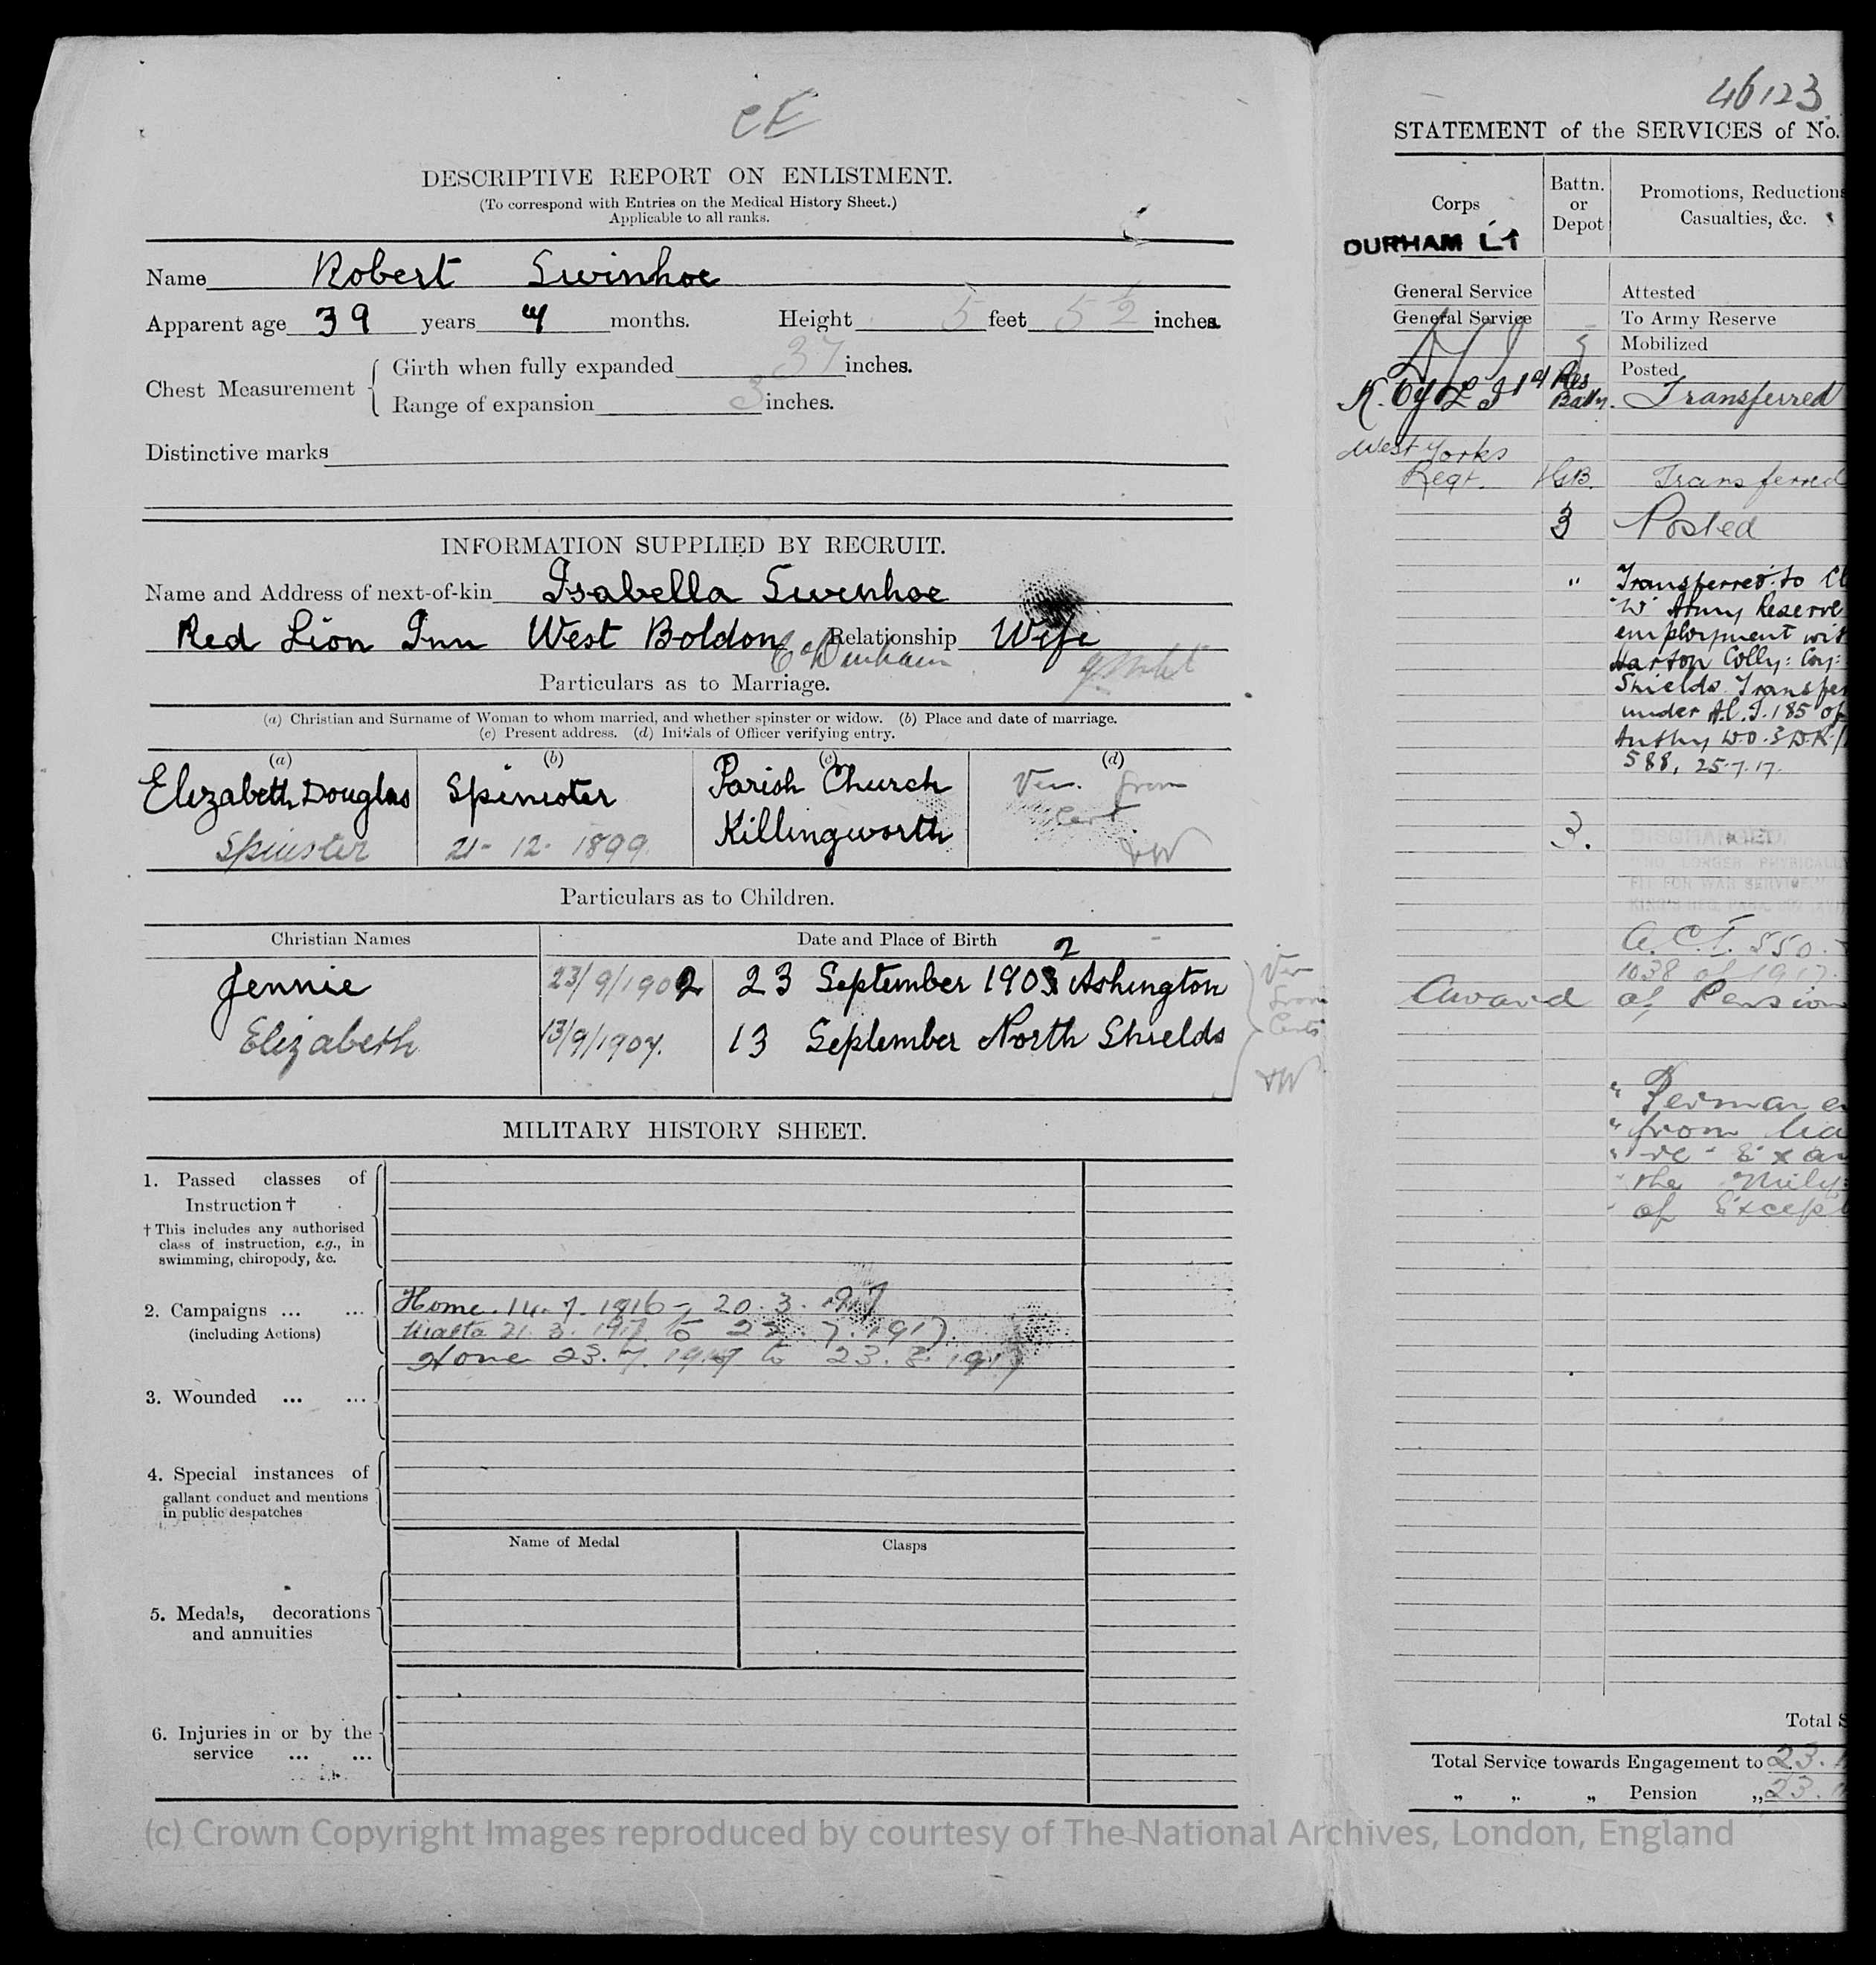 CE
DESCRIPTIVE REPORT ON ENLISTMENT.
(To correspond with Entries on the Medical History Sheet.)
Applicable to all ranks.
Name Robert Swinhoe
Apparent age 39 years 4 months. Height 5 feet 5 ½ inches.
Chest Measurement
Girth when fully expanded 37 inches.
Range of expansion 3 inches.
Distinctive marks
INFORMATION SUPPLIED BY RECRUIT.
Name and Address of next-of-kin Isabella Swinhoe
Red Lion Inn West Boldon Relationship Wife
Co Durham
Particulars as to Marriage.
(a) Christian and Surname of Woman to whom married, and whether spinster or widow. (b) Place and date of marriage.
(c) Present address. (d) Initials of Officer verifying entry.
(a) (b) (c) (d)
Elizabeth Douglas Spinister Parish Church Ver. from
Spinster 21- 12- 1899 Killingworth Cert
Particulars as to Children.
Christian Names Date and Place of Birth
2
Jennie 23/9/1902 23 September 1903 Ashington Ver from Certs
Elizabeth 13/9/1907. 13 September North Shields
MILITARY HISTORY SHEET.
1. Passed classes of
Instruction †
† This includes any authorised
class of instruction, e.g., in
swimming, chiropody, &c.
2. Campaigns ... ... Home. 14. 7. 1916 - 20. 3. 1917
(including Actions) Malta 21. 3. 1917 to 22. 7. 1917.
Home 23. 7. 1917 to 23. 8. 1917
3. Wounded ... ...
4. Special instances of
gallant conduct and mentions
in public despatches
Name of Medal Clasps
5. Medals, decorations
and annuities
6. Injuries in or by the
service ... ...
46123
STATEMENT of the SERVICES of No.
Corps Battn. or Depot Promotions, Reductions Casualties, &c.
DURHAM L I
General Service Attested
General Service To Army Reserve
Mobilized
Posted
K. O. Y. L I 1st Res Battn. Transferred
West Yorks
Regt. Transferred
3 Posted
" Transferred to Cl
"W" Army Reserve
employment wit
Harton Colly: Coy:
Shields. Transfer
under A.C.I. 185 of
Authy W.O.
588, 25.7.17.
3. DISCHARGED.
"NO LONGER PHYSICALLY
FIT FOR WAR SERVICE"
A.C.I. 550.
1038 of 1917.
Award of Pension
" Perman
" from lia
" re- Exa
" the Mily
" of Except
Total S
Total Service towards Engagement to 23.
" " " Pension " 23.
(c) Crown Copyright Images reproduced by courtesy of The National Archives, London, England